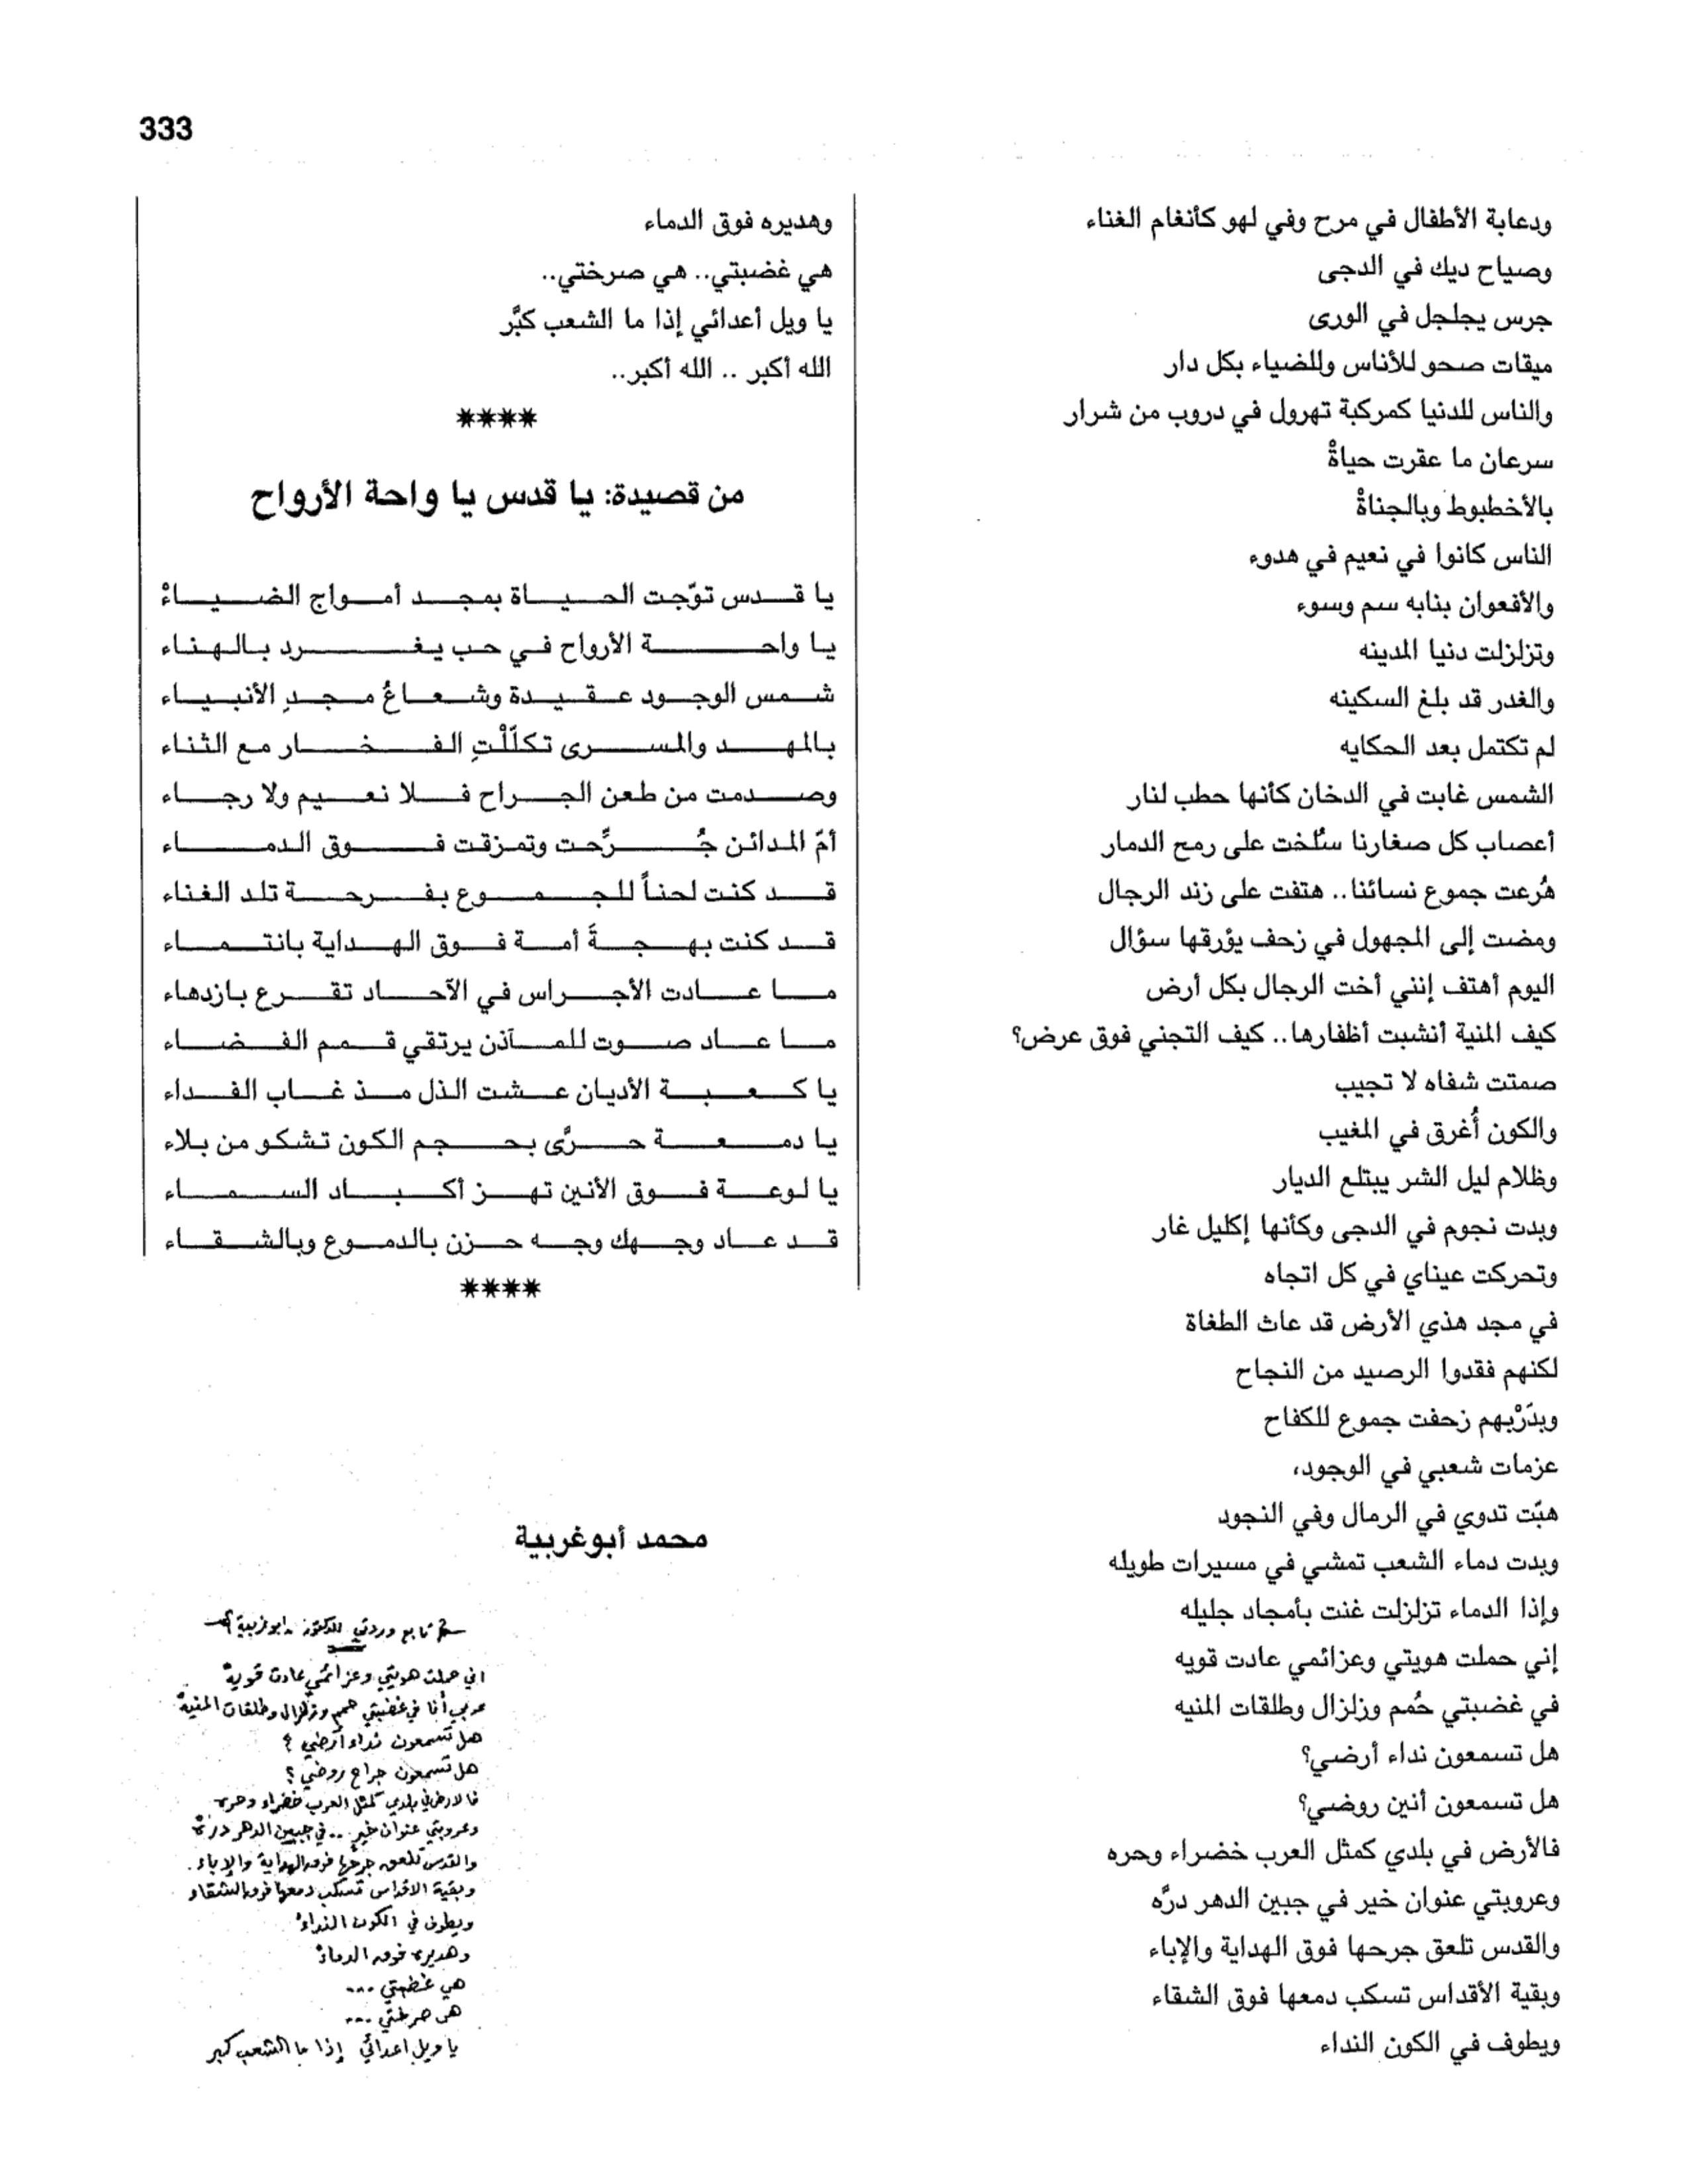 333
ودعابة الأطفال في مرح وفي لهو كأنغام الغناء
وصياح ديك في الدجى
جرس يجلجل في الورى
ميقات صحو للأناس وللضياء بكل دار
والناس للدنيا كمركبة تهرول في دروب من شرار
سرعان ما عقرت حياةْ
بالأخطبوط وبالجناةْ
الناس كانوا في نعيم في هدوء
والأفعوان بنابه سم وسوء
وتزلزلت دنيا المدينه
والغدر قد بلغ السكينه
لم تكتمل بعد الحكايه
الشمس غابت في الدخان كأنها حطب لنار
أعصاب كل صغارنا سُلخت على رمح الدمار
هُرعت جموع نسائنا.. هتفت على زند الرجال
ومضت إلى المجهول في زحف يؤرقها سؤال
اليوم أهتف إنني أخت الرجال بكل أرض
كيف المنية أنشبت أظفارها.. كيف التجني فوق عرض؟
صمتت شفاه لا تجيب
والكون أُغرق في المغيب
وظلام ليل الشر يبتلع الديار
وبدت نجوم في الدجى وكأنها إكليل غار
وتحركت عيناي في كل اتجاه
في مجد هذي الأرض قد عاث الطغاة
لكنهم فقدوا الرصيد من النجاح
وبدَرْبهم زحفت جموع للكفاح
عزمات شعبي في الوجود،
هبّت تدوي في الرمال وفي النجود
وبدت دماء الشعب تمشي في مسيرات طويله
وإذا الدماء تزلزلت غنت بأمجاد جليله
إني حملت هويتي وعزائمي عادت قويه
في غضبتي حُمم وزلزال وطلقات المنيه
هل تسمعون نداء أرضي؟
هل تسمعون أنين روضي؟
فالأرض في بلدي كمثل العرب خضراء وحره
وعروبتي عنوان خير في جبين الدهر درَّه
والقدس تلعق جرحها فوق الهداية والإباء
وبقية الأقداس تسكب دمعها فوق الشقاء
ويطوف في الكون النداء
وهديره فوق الدماء
هي غضبتي.. هي صرختي..
يا ويل أعدائي إذا ما الشعب كبَّر
الله أكبر .. الله أكبر..
****
من قصيدة: يا قدس يا واحة الأرواح
يا قدس توّجت الحياة بمجد أمواج الضياءْ
يا واحة الأرواح في حب يغرد بالهناء
شمس الوجود عقيدة وشعاعُ مجدِ الأنبياء
بالمهد والمسرى تكلّلْتِ الفخار مع الثناء
وصدمت من طعن الجراح فلا نعيم ولا رجاء
أمّ المدائن جُرِّحت وتمزقت فوق الدماء
قد كنت لحناً للجموع بفرحة تلد الغناء
قد كنت بهجةَ أمة فوق الهداية بانتماء
ما عادت الأجراس في الآحاد تقرع بازدهاء
ما عاد صوت للمآذن يرتقي قمم الفضاء
يا كعبة الأديان عشت الذل مذ غاب الفداء
يا دمعة حرَّى بحجم الكون تشكو من بلاء
يا لوعة فوق الأنين تهز أكباد السماء
قد عاد وجهك وجه حزن بالدموع وبالشقاء
****
محمد أبوغربية
تابع وردتي للدكتور أبوغربية
اني حملت هويتي وعزائمي عادت قوية
عربي أنا في غضبتي حمم وزلزال وطلقات المنية
هل تسمعون نداء أرضي ؟
هل تسمعون جراح روضي ؟
فالارض في بلدي كمثل العرب خضراء وحره
وعروبتي عنوان خير .. في جبين الدهر درة
والقدس تلعق جرحها فوق الهداية والإباء .
وبقية الاقداس تسكب دمعها فوق الشقاء
ويطوف في الكون النداءْ
وهديره فوق الدماءْ
هي غضبتي ...
هي صرختي ...
يا ويل اعدائي إذا ما الشعب كبر